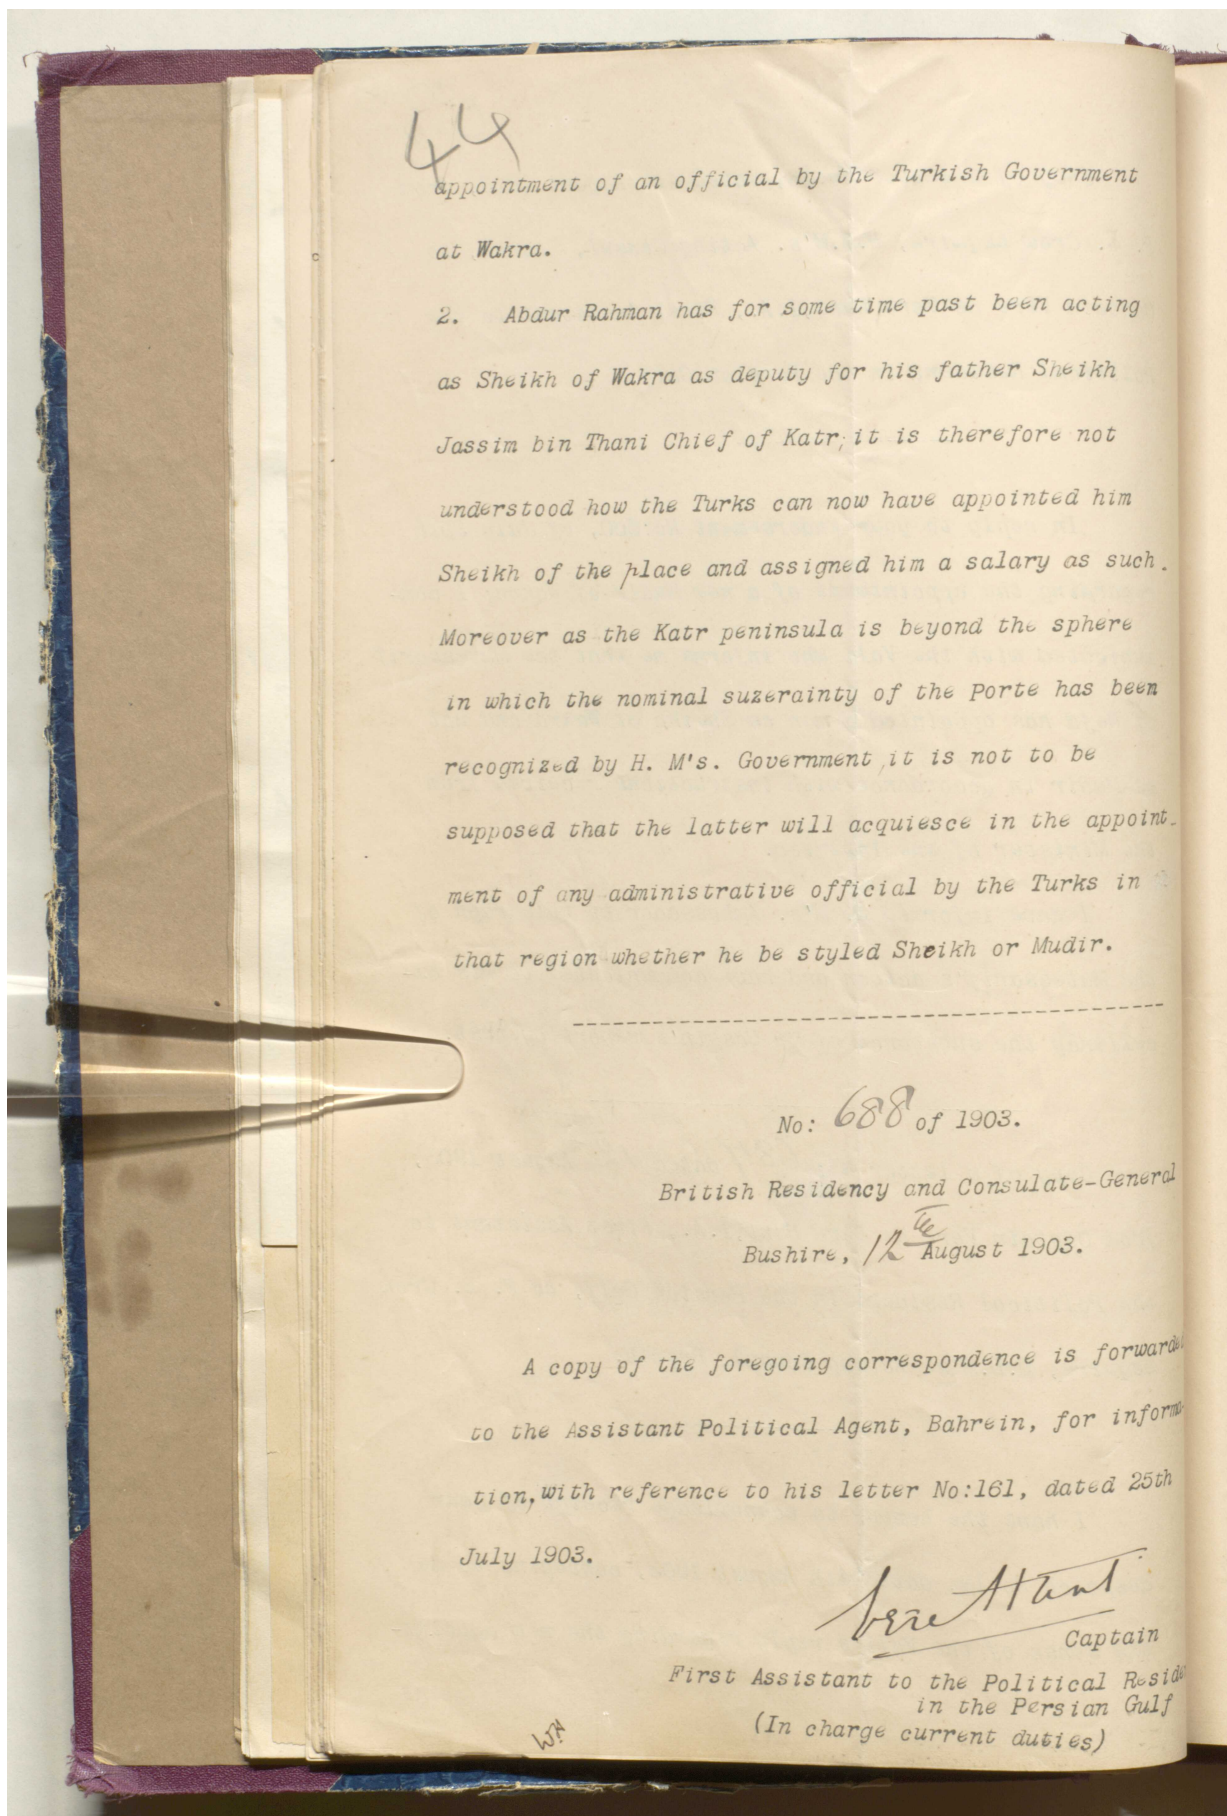 44
appointment of an official by the Turkish Government
at Wakra.
2. Abdur Rahman has for some time past been acting
as Sheikh of Wakra as deputy for his father Sheikh
Jassim bin Thani Chief of Katr; it is therefore not
understood how the Turks can now have appointed him
Sheikh of the place and assigned him a salary as such.
Moreover as the Katr peninsula is beyond the sphere
in which the nominal suzerainty of the Porte has been
recognized by H. M's. Government, it is not to be
supposed that the latter will acquiesce in the appoint-
ment of any administrative official by the Turks in
that region whether he be styled Sheikh or Mudir.
No: 688 of 1903.
British Residency and Consulate-General
Bushire, 12th August 1903.
A copy of the foregoing correspondence is forwarded
to the Assistant Political Agent, Bahrein, for informa-
tion, with reference to his letter No:161, dated 25th
July 1903.
Captain
First Assistant to the Political Reside
in the Persian Gulf
(In charge current duties)